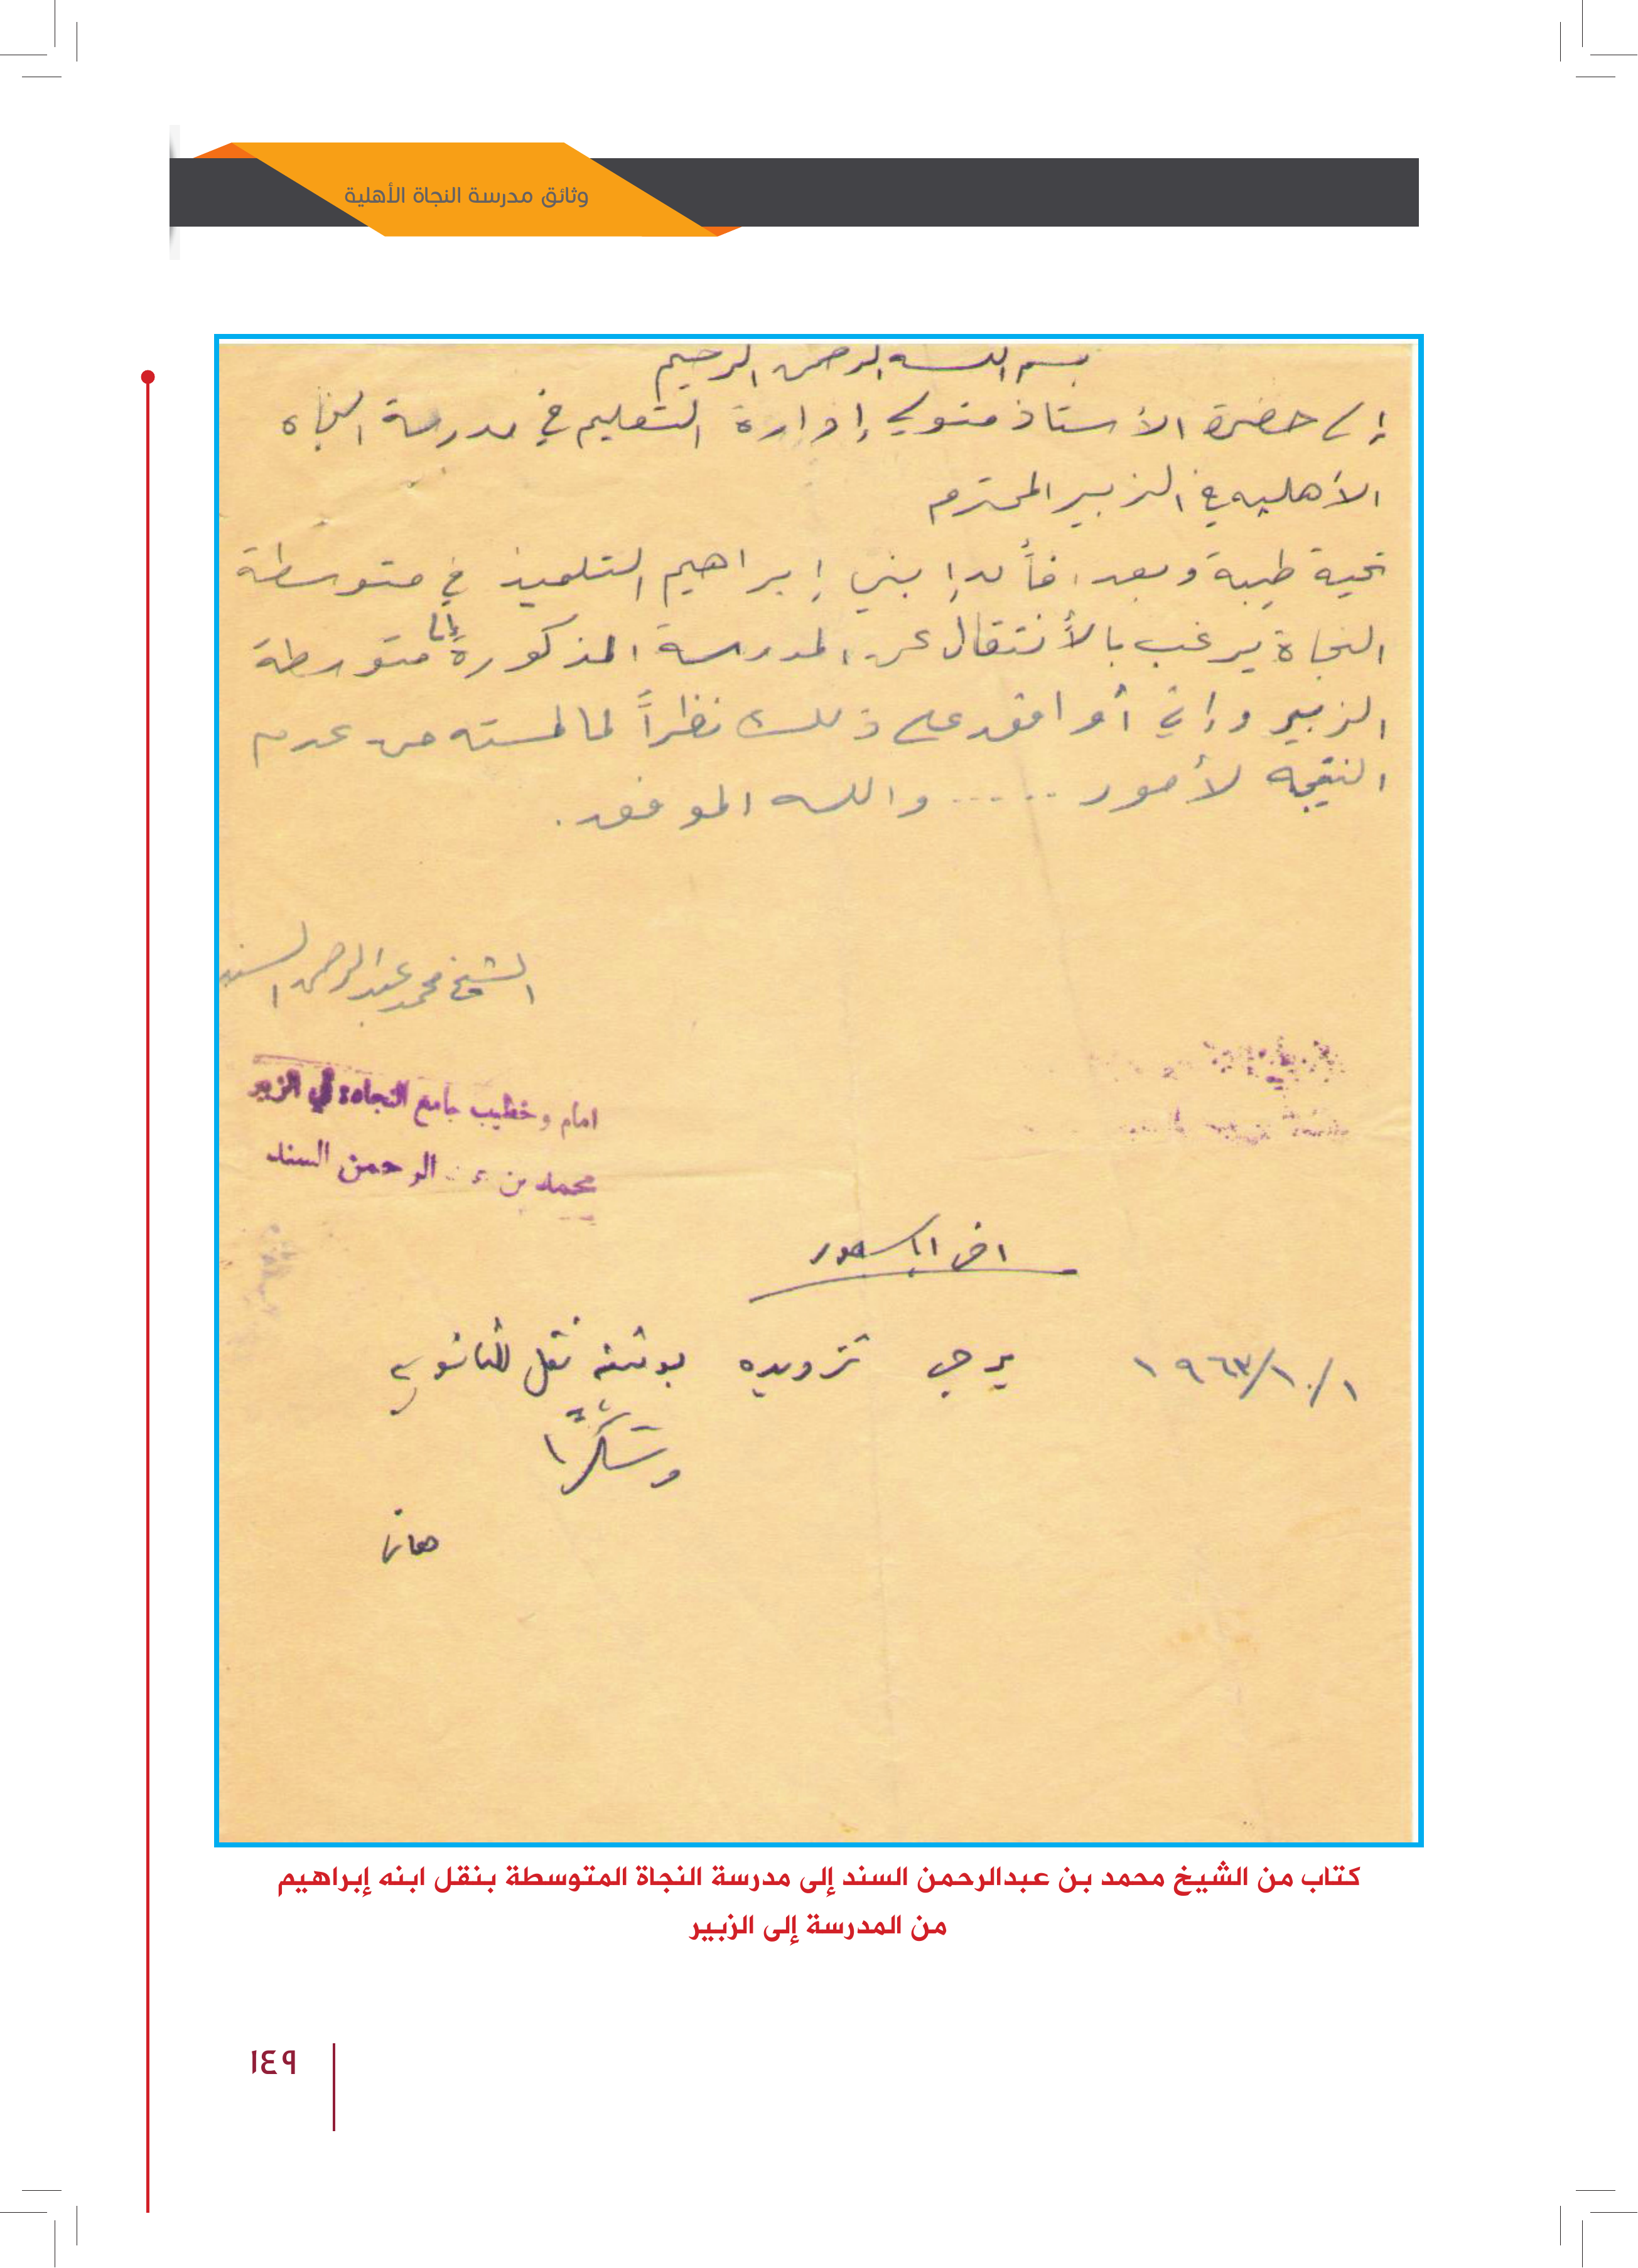 وثائق مدرسة النجاة الأهلية
بسم الله الرحمن الرحيم
إلى حضرة الأستاذ متولي إدارة التعليم في مدرسة النجاه
الأهليه في الزبير المحترم
تحية طيبة وبعد، فأن إبني إبراهيم التلميذ في متوسطة
النجاة يرغب بالأنتقال عن المدرسة المذكورة إلى متوسطة
الزبير وإني أوافق على ذلك نظراً لما لمسته من عدم
النتيجه لأمور ..... والله الموفق.
الشيخ محمد عبدالرحمن السند
امام وخطيب جامع النجاة في الزبير
محمد بن الرحمن السند
اخي
١٩٦٣/١٠/١ يرجى تزويده بوثيقة نقل للثانوي
وشكرًا
كتاب من الشيخ محمد بن عبدالرحمن السند إلى مدرسة النجاة المتوسطة بنقل ابنه إبراهيم
من المدرسة إلى الزبير
١٤٩